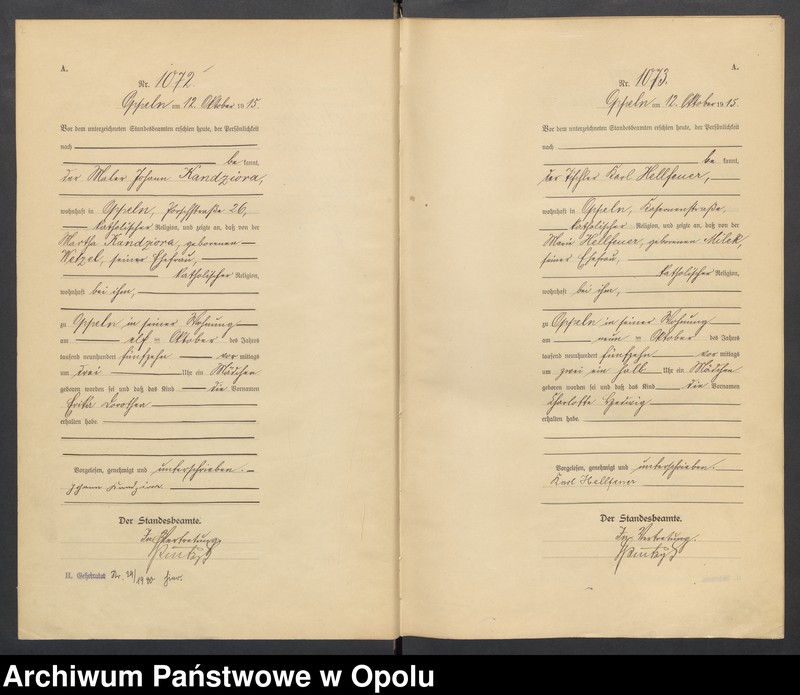 A.
Nr. 1072
Oppeln am 12. Oktober 1915.
Vor dem unterzeichneten Standesbeamten erschien heute, der Persönlichkeit
nach
be kannt,
der Maler Johann Kandziora,
wohnhaft in Oppeln, 26,
katholischer Religion, und zeigte an, daß von der
Martha Kandziora, geborenen
Wetzel, seiner Ehefrau,
katholischer Religion,
wohnhaft bei ihm,
zu Oppeln in seiner Wohnung
am elf ten Oktober des Jahres
tausend neunhundert fünfzehn vor mittags
um drei Uhr ein Mädchen
geboren worden sei und daß das Kind die Vornamen
Erika Dorothea
erhalten habe.
Vorgelesen, genehmigt und unterschrieben.
Johann Kandziora
Der Standesbeamte.
In Vertretung.
II. Geheiratet Nr. 29/1940 hier.
A.
Nr. 1073.
Oppeln am 12. Oktober 1915.
Vor dem unterzeichneten Standesbeamten erschien heute, der Persönlichkeit
nach
be kannt,
der Tischler Karl Hellfeuer,
wohnhaft in Oppeln, Kasernenstraße,
katholischer Religion, und zeigte an, daß von der
Marie Hellfeuer, geborenen Milek,
seiner Ehefrau,
katholischer Religion,
wohnhaft bei ihm,
zu Oppeln in seiner Wohnung
am neun ten Oktober des Jahres
tausend neunhundert fünfzehn vor mittags
um zwei ein halb Uhr ein Mädchen
geboren worden sei und daß das Kind die Vornamen
Charlotte Hedwig
erhalten habe.
Vorgelesen, genehmigt und unterschrieben.
Karl Hellfeuer
Der Standesbeamte.
In Vertretung.
Archiwum Państwowe w Opolu